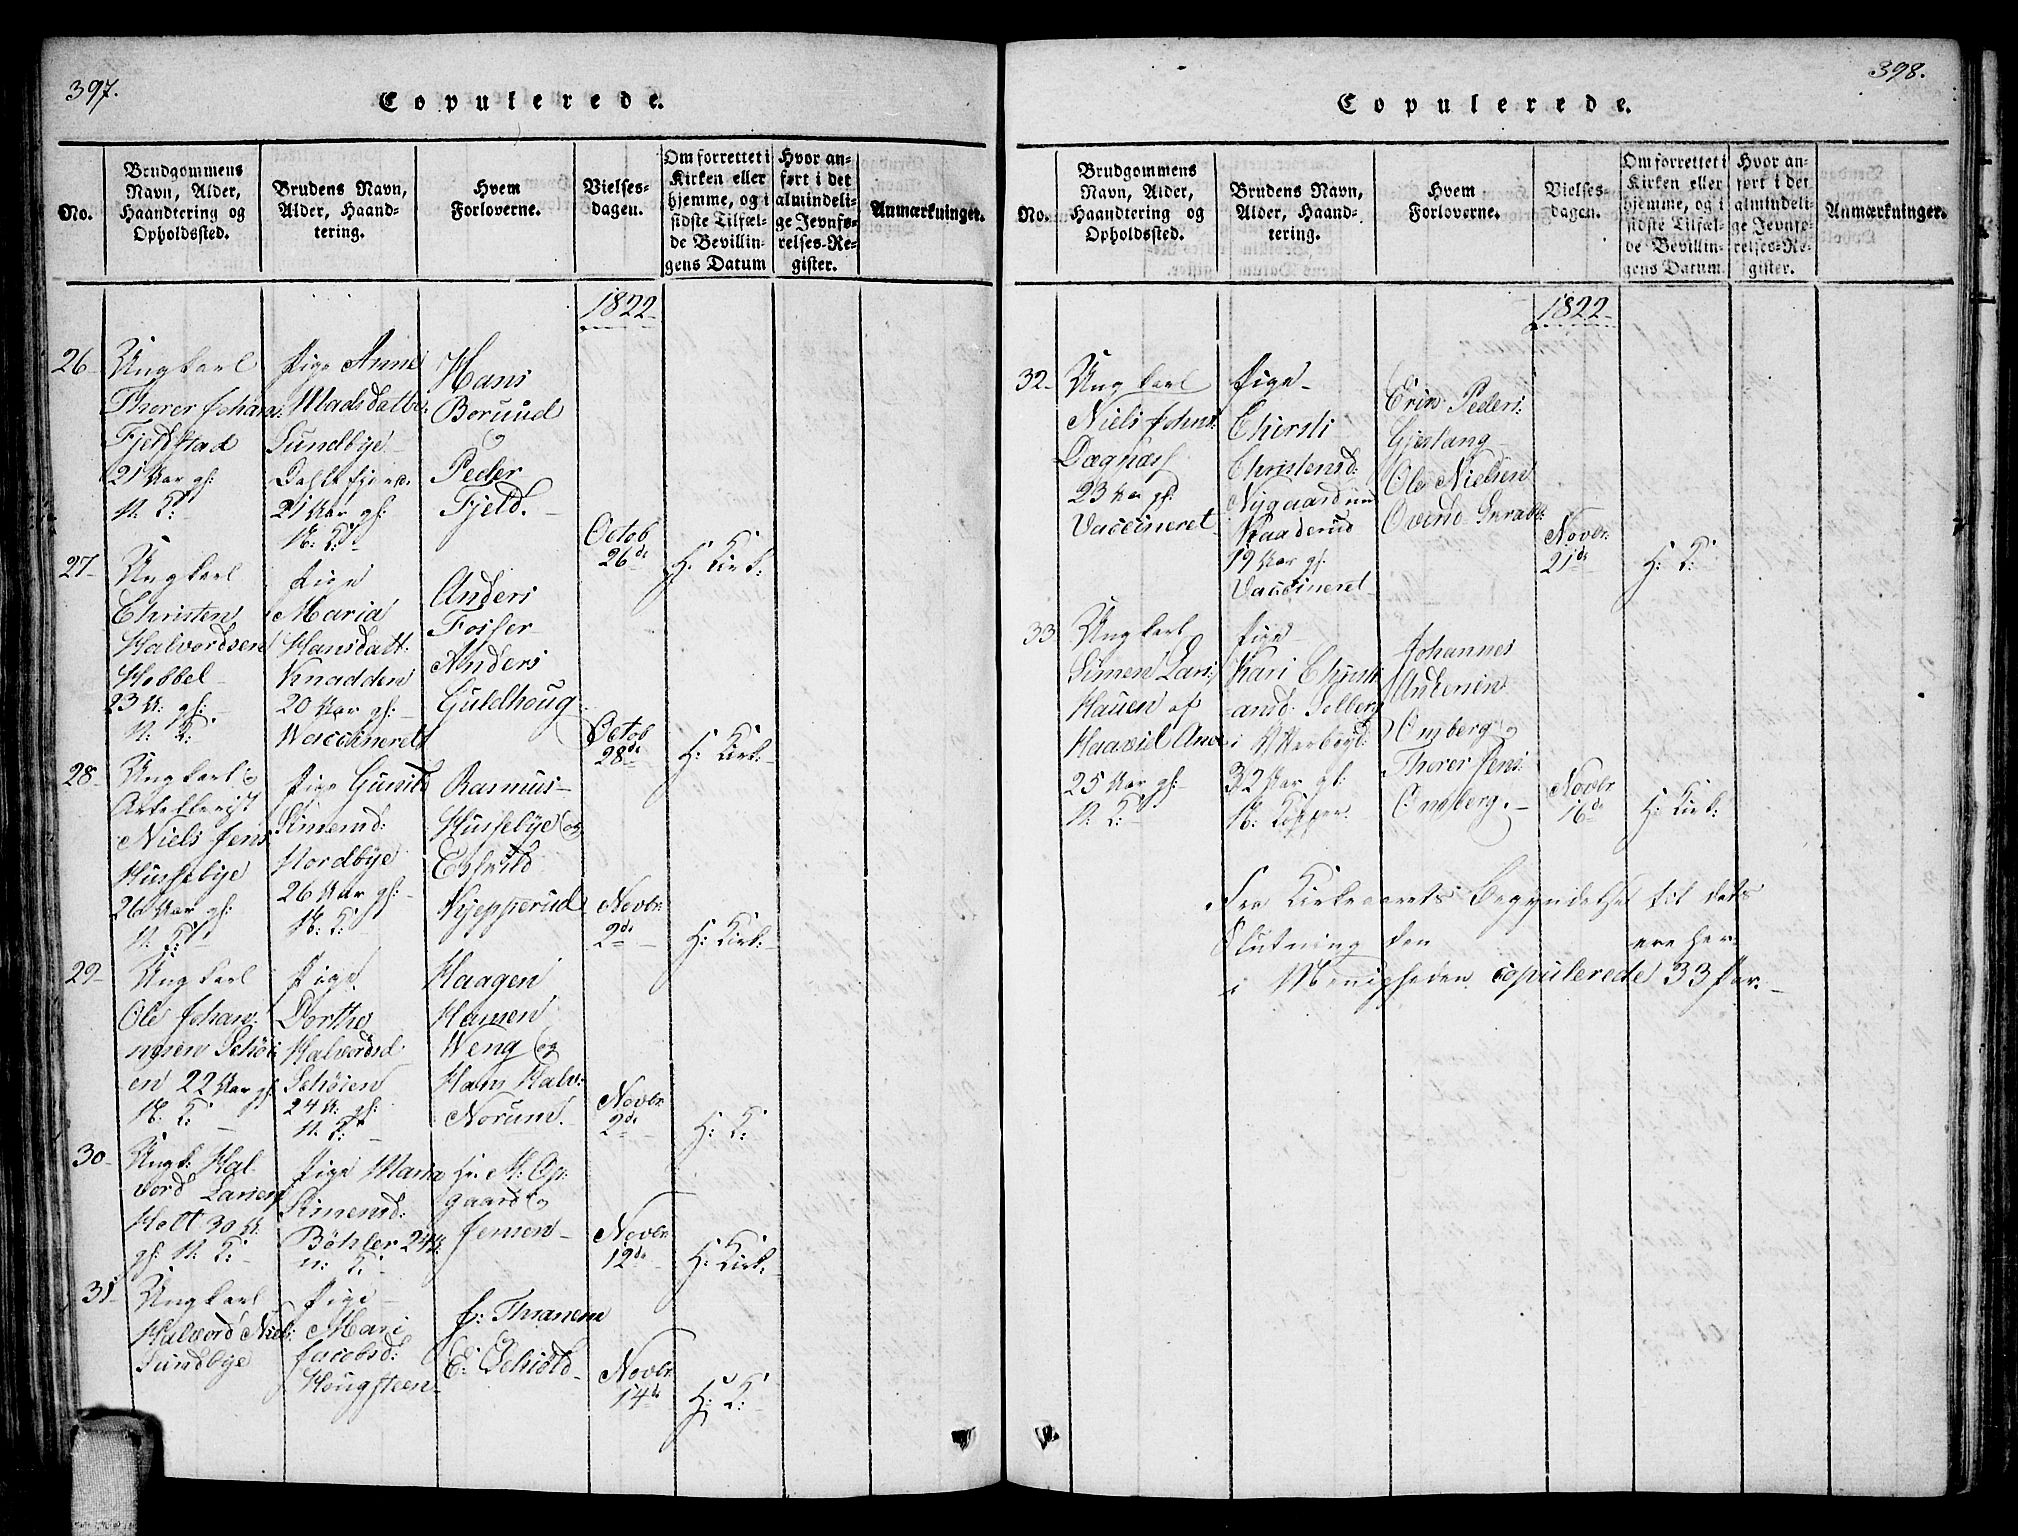 397.
Copulerede.
No.
Brudgommens
Navn, Alder,
Haandtering og
Opholdssted.
Brudens Navn,
Alder, Haand-
tering.
Hvem
Forloverne.
Vielses-
dagen.
Om forrettet i
Kirken eller
hjemme, og i
sidste Tilfæl-
de Bevillin-
gens Datum
Hvor an-
ført i det
almindeli-
ge Jevnfø-
relses-Re-
gister.
Anmærkninger.
1822
26
Ungkarl
Thorer Johan:
Fjeldstad
21 Aar gl:
N. K:
Pige Anne
Madsdatter
Sundbye
21 Aar gl:
N. K:
Hans
Borund
og
Peder
Fjeld.
Octob
26de
H: Kirk:
27
Ungkarl
Christen
Halvordsen
Hobbel
23 A: gl:
N. K:
Pige
Maria
Hansdatt:
Knadden
20 Aar gl:
Waccineret
Anders
Fosser
Anders
Guldhoug
Octob
28de
H: Kirk:
28
Ungkarl og
Artellerist
Niels Jens
Hussebye
26 Aar gl:
N. K:
Pige Gunild
Simensd:
Nordbye
26 Aar gl:
N. K:
Rasmus
Hussebye og
Eskild
Kjepperud
Novbr
2de
H: Kirk:
29
Ungkarl
Ole Johan:
nesen Schøi
en 22 Aar gl:
N. K:
Pige
Dorthe
Halvordsd
Schøien
24 A: gl:
N. K:
Haagen
Hansen
Weng og
Hans Halv:
Norund.
Novbr
2de
H: K:
30
Ungk: Hal
vord Larsen
Holt 30 A:
gl: N. K:
Pige Maria
Simensd:
Böhler 24 A:
n: K:
Hr. M: Op:
gaard og
Jensen
Novbr
12de
H: Kirk:
31
Ungkarl
Halvord Niel:
Sundbye
Pige
Mari
Jacobsd:
Hougsteen
J: Thranem
E: Schiöld
Novbr
14de
H: K:
398.
Copulerede.
No.
Brudgommens
Navn, Alder,
Haandtering og
Opholdssted.
Brudens Navn,
Alder, Haand-
tering.
Hvem
Forloverne.
Vielses-
dagen.
Om forrettet i
Kirken eller
hjemme, og i
sidste Tilfæl-
de Bevillin-
gens Datum.
Hvor an-
ført i det
almindeli-
ge Jevnfø-
relses-Re-
gister.
Anmærkninger.
1822
32
Ungkarl
Niels Johns:
Dægnæs
23 Aar gl:
Vaccineret
Pige
Chersti
Christensd:
Nygaard
Kaaderud
19 Aar gl:
Vaccineret
Erin Peders:
Gjeslang
Ole Nielsen
Ovind
Novbr.
21de
H: K:
33
Ungkarl
Simen Lars:
Hauen af
25 Aar gl:
N. K:
Pige
Kari Christi
ansd: Solberg
i
32 Aar gl:
N. Kopper.
Johannes
Antenin
Omberg og
Thorer Jens:
Omberg.
Novbr
16de
H: Kirk:
Fra Kirkeaarets Begyndelse til dets
Slutning den ere her
i Menigheden copulerede 33 Par.